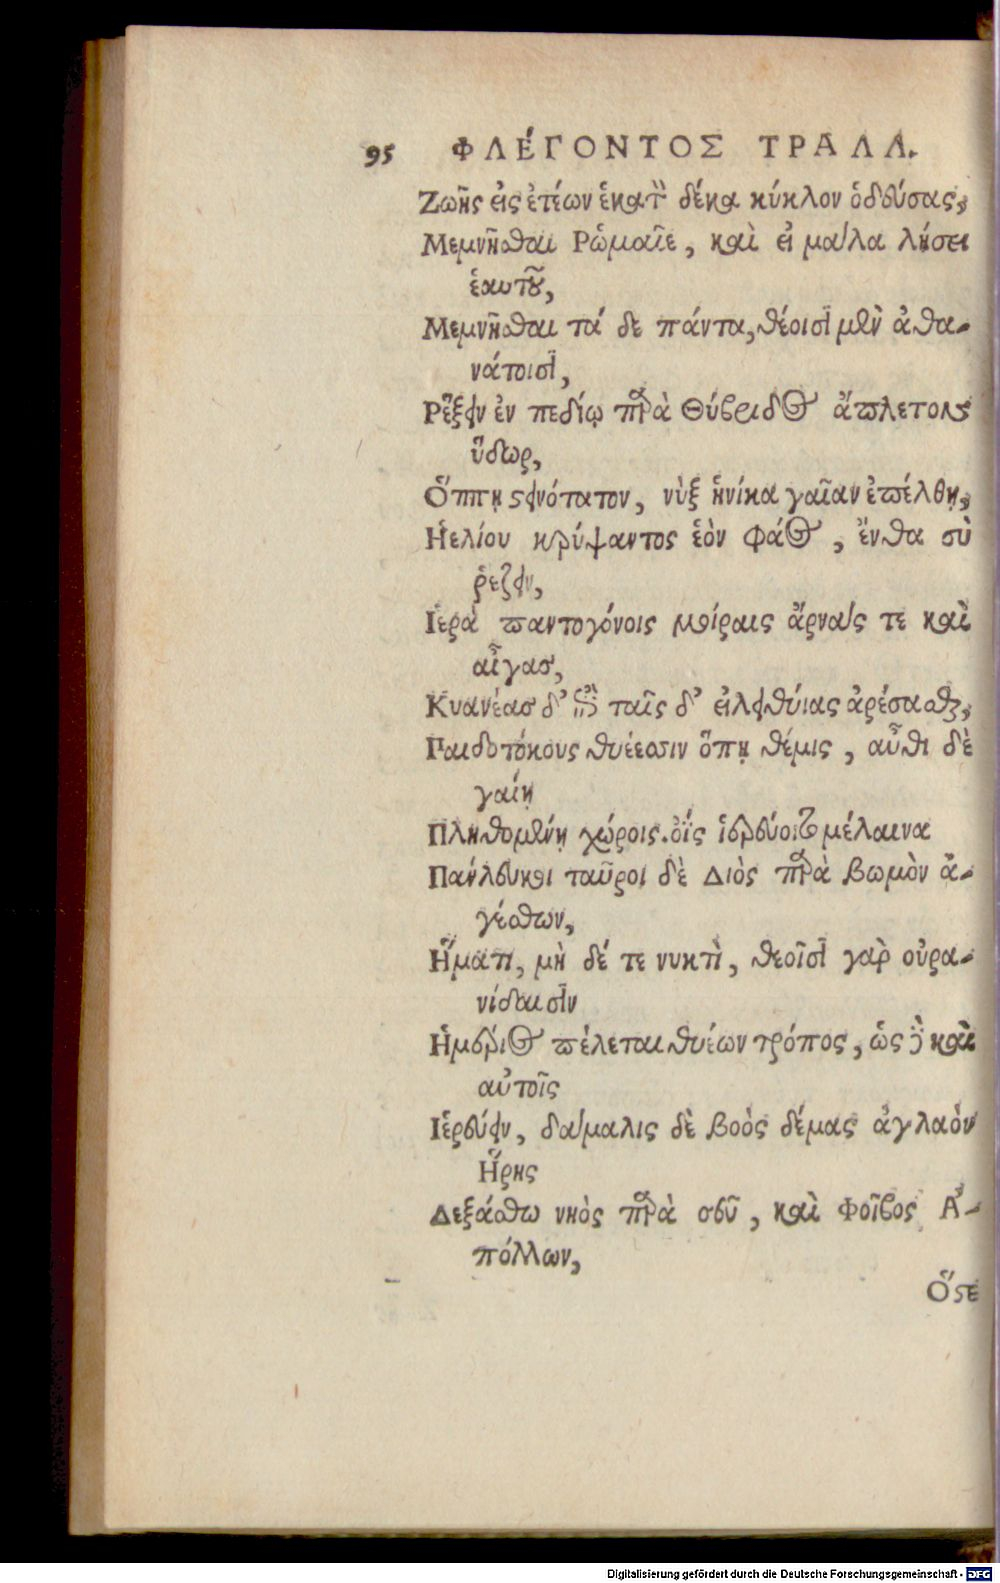 95 ΦΛΈΓΟΝΤΟΣ ΤΡΑΛΛ.
Ζωῆς εἰς ἐτέων ἑκατὸν δέκα κύκλον ὁδεύσας,
Μεμνῆσθαι Ρὡμαῖε, καὶ εἰ μάλα λήσει
ἑαυτοῦ,
Μεμνῆσθαι τά δε πάντα, θέοισὶ μὲν ἀθα-
νάτοισὶ,
Ρέξειν ἐν πεδίῳ παρὰ Θύβριδος ἄπλετον
ὕδωρ,
Ὅππη στεινότατον, νὺξ ἡνίκα γαῖαν ἐπέλθῃ,
Ηελίου κρύψαντος ἑὸν φάος, ἔνθα σὺ
ῥεζειν,
Ιἑρὰ παντογόνοις μοίραις ἄρνας τε καὶ
αἶγασ,
Κυανέασ δ' ταῖς δ' εἰλειθύιας ἀρέσασθαι,
Παιδοτόκους θυέεσσιν ὅπῃ θέμις, αὖθι δὲ
γαίῃ
Πληθομένῃ χώροις. οἷς ἱερεύοιτο μέλαινα
Πάνλευκοι ταῦροι δὲ Διὸς παρὰ βωμὸν ἀ-
γέσθων,
Ἤματι, μὴ δέ τε νυκτὶ, θεοῖσὶ γὰρ οὐρα-
νίδαισὶν
Ἡμέριος πέλεται θυέων τρόπος, ὡς καὶ
αὐτοῖς
Ιἑρεύειν, δάμαλις δὲ βοὸς δέμας ἀγλαὸν
Ἥρης
Δεξάσθω νηὸς παρὰ σεῦ, καὶ Φοῖβος Ἀ-
πόλλων,
Ὅστε
Digitalisierung gefördert durch die Deutsche Forschungsgemeinschaft - DFG